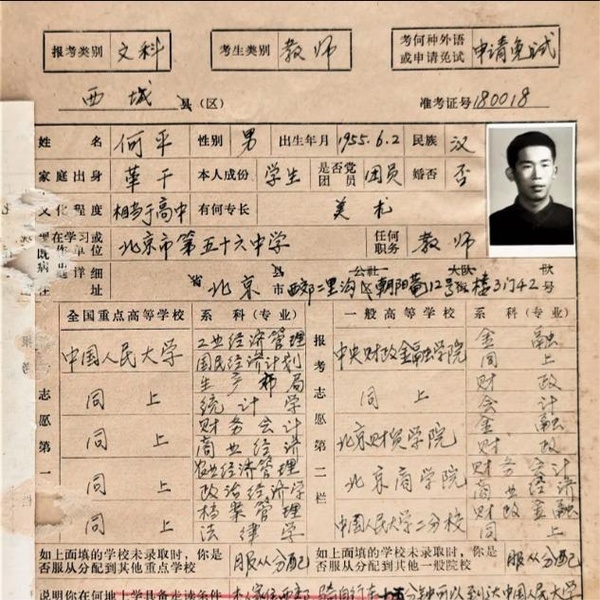 报考类别 文科 考生类别 教师 考何种外语或申请免试 申请免试
西城 县(区) 准考证号 180018
姓名 何平 性别 男 出生年月 1955.6.2 民族 汉
家庭出身 革干 本人成份 学生 是否党团员 团员 婚否 否
文化程度 相当于高中 有何专长 美术
在学习或 单位 北京市第五十六中学 任何职务 教师
既病
详细址 省 北京 县市 西郊二里沟 公社区 朝阳菴12号 大队 楼3门42 队号
全国重点高等学校 系科(专业) 一般高等学校 系科(专业)
中国人民大学 工业经济管理 中央财政金融学院 金融
国民经济计划 同上
同上 生产布局 同上 财政
统计学 会计
同上 财务会计 北京财贸学院 金融
商业经济 财政
同上 农业经济管理 北京商学院 财务会计
政治经济学 商业经济
同上 档案管理 中国人民大学二分校 财政金融
法律学 同上
志愿第一
报考志愿第二栏
如上面填的学校未录取时,你是否服从分配到其他重点学校 服从分配 如上面填的学校未录取时,你是否服从分配到其他一般院校 服从分配
说明你在何地上学具备走读条件 本人家住西郊 骑自行车 十五分钟可以到达中国人民大学